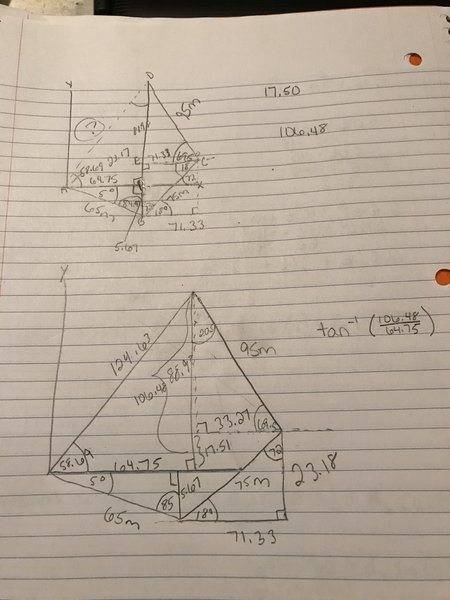 17.50
106.48
Y
D
95m
?
E
71.33
69.5
C
18
72
X
58.69
23.17
64.75
5°
A
65m
75m
18°
B
71.33
5.67
Y
124.63
20.5
95m
106.48
88.98
tan⁻¹ (106.48/64.75)
33.27
69.5
17.51
72
58.69
64.75
5°
5.67
75m
23.18
85
65m
18°
71.33